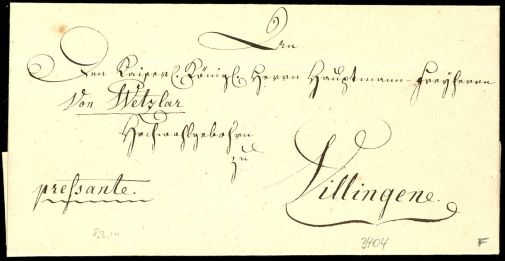 An
Den Kaiserl. Königl. Herrn Hauptmann Freyherrn
Von Wetzlar
Hochwohlgebohrn
zu
Villingene.
pressante.
3404
F